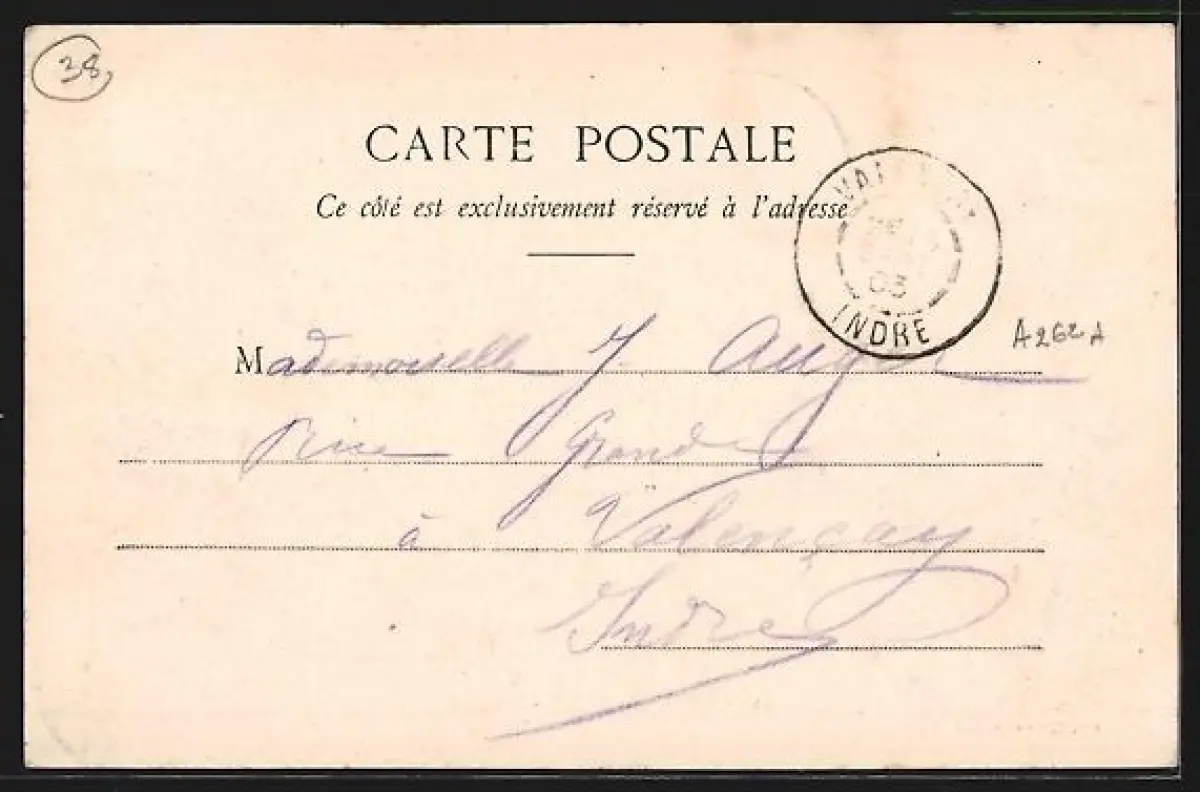 38
CARTE POSTALE
Ce côté est exclusivement réservé à l'adresse
03
INDRE
A262A
Mademoiselle J. Auger
rue Grande
à Valençay
Indre